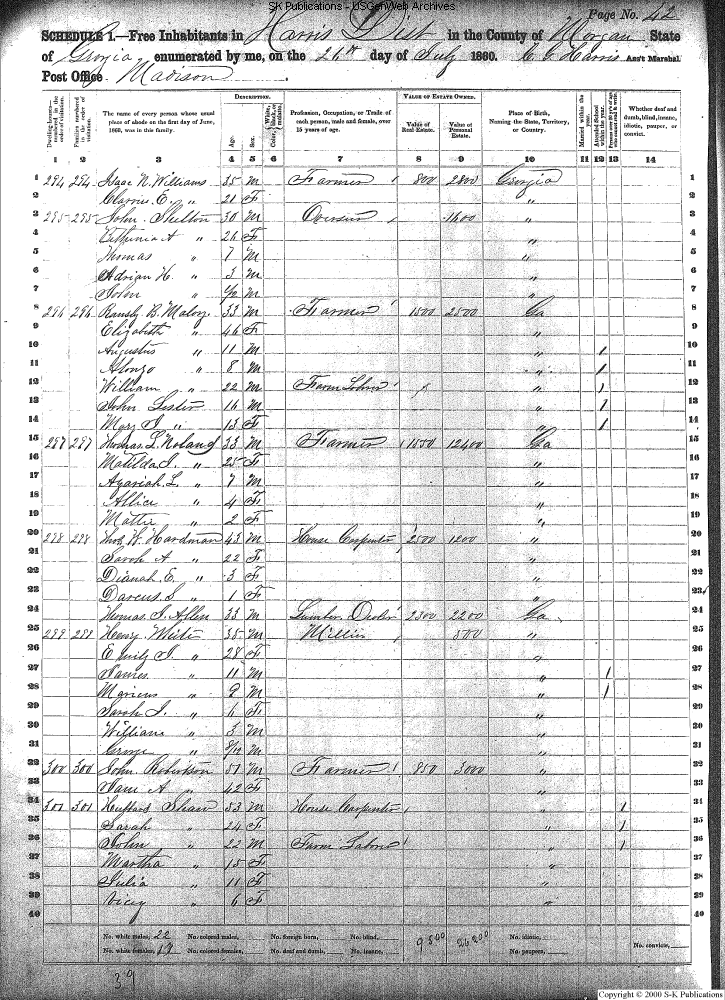 SK Publications - USGenWeb Archives
Page No. 42
SCHEDULE 1.—Free Inhabitants in Harris Dist in the County of Morgan State
of Georgia enumerated by me, on the 26th day of July 1860. C C Harris Ass't Marshal.
Post Office Madison
DESCRIPTION. VALUE OF ESTATE OWNED.
Dwelling-houses—numbered in the order of visitation. Families numbered in the order of visitation. The name of every person whose usual place of abode on the first day of June, 1860, was in this family. Age. Sex. Color, White, black, or mulatto. Profession, Occupation, or Trade of each person, male and female, over 15 years of age. Value of Real Estate. Value of Personal Estate. Place of Birth, Naming the State, Territory, or Country. Married within the year. Attended School within the year. Persons over 20 years of age who cannot read & write. Whether deaf and dumb, blind, insane, idiotic, pauper, or convict.
1 2 3 4 5 6 7 8 9 10 11 12 13 14
1 294 294 Isaac N. Williams 35 M Farmer 800 2800 Georgia 1
2 " 21 F " 2
3 295 295 John Shelton 30 M 1600 " 3
4 A " 26 F " 4
5 Thomas " 7 M " 5
6 Adrian H " 3 M " 6
7 John " M " 7
8 296 296 B. Malory 33 M Farmer 1500 2500 Ga 8
9 Elizabeth " 46 F " 9
10 Augustus " 11 M " / 10
11 Alonzo " 8 M " / 11
12 William " 22 M Farm " / 12
13 John Lester 16 M " / 13
14 Mary J " 13 F " / 14
15 297 297 Thomas L. Noland 33 M Farmer 1550 12400 Ga 15
16 Matilda J. " 25 F " 16
17 Azariah L. " 7 M " 17
18 Allice " 4 F " 18
19 Mattie " 2 F " 19
20 298 298 Thos W. Hardman 43 M House Carpenter 2500 1200 " 20
21 Sarah A " 22 F " 21
22 Dianah E. " 3 F " 22
23 Darcus S " 1 F " 23
24 Thomas J. Allen 33 M Lumber Dealer 2300 2200 Ga 24
25 299 Henry 35 M 500 " 25
26 Emily J. " 28 F " 26
27 James " 11 M " / 27
28 Marcus " 9 M " / 28
29 Sarah J. " 6 F " 29
30 William " 3 M " 30
31 George " 8/12 M " 31
32 300 300 John Robertson 51 M Farmer 850 3000 " 32
33 A " 42 F " 33
34 301 301 Shaw 53 M House Carpenter " / 34
35 Sarah " 24 F " / 35
36 John " 22 M Farm Labor " / 36
37 Martha " 15 F " 37
38 Julia " 11 F " 38
39 " 6 F " 39
40 40
No. white males, 22 No. colored males, No. foreign born, No. blind, 9500 26200 No. idiotic,
No. white females, 17 No. colored females, No. deaf and dumb, No. insane, No. paupers, No. convicts,
39
Copyright © 2000 S-K Publications